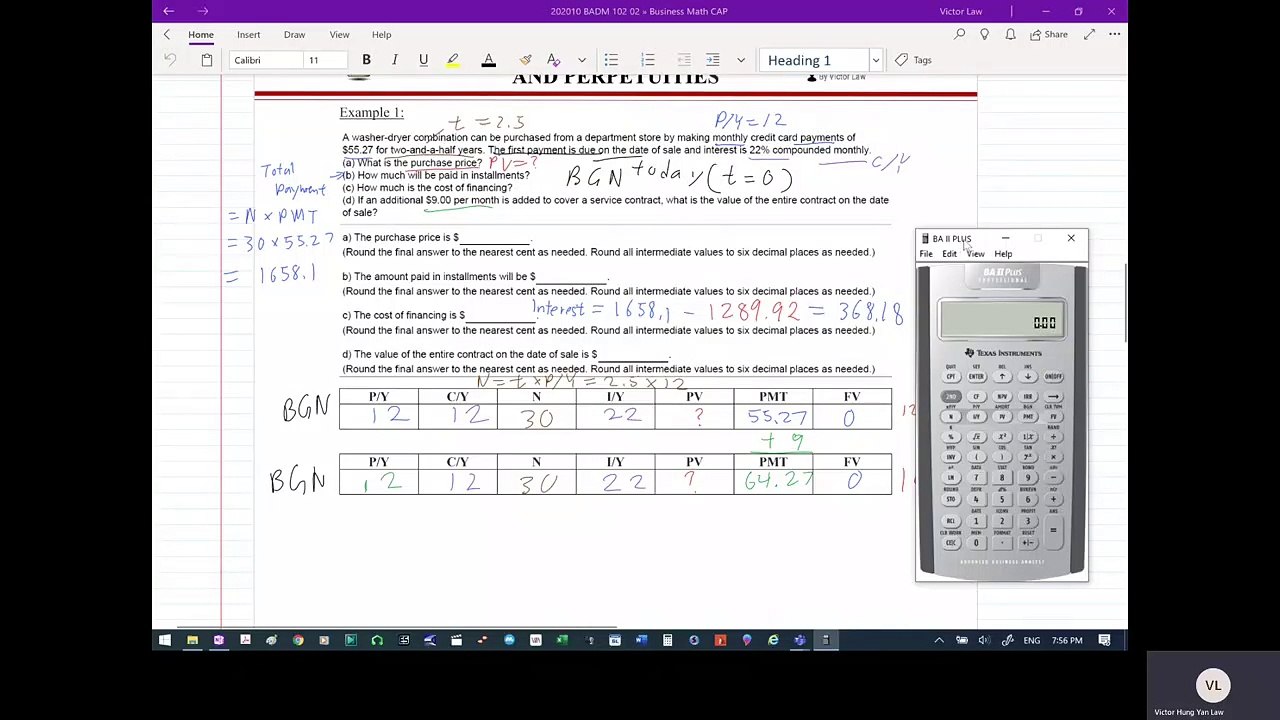 202010 BADM 102 02 » Business Math CAP
Victor Law
Home Insert Draw View Help
Share
Calibri 11 B I U A Heading 1 Tags
AND PERPETUITIES
By Victor Law
Example 1:
t = 2.5
P/Y = 12
A washer-dryer combination can be purchased from a department store by making monthly credit card payments of
$55.27 for two-and-a-half years. The first payment is due on the date of sale and interest is 22% compounded monthly.
C/Y
(a) What is the purchase price? PV = ?
(b) How much will be paid in installments?
BGN today (t = 0)
(c) How much is the cost of financing?
(d) If an additional $9.00 per month is added to cover a service contract, what is the value of the entire contract on the date
of sale?
Total
Payment
= N × PMT
= 30 × 55.27
= 1658.1
a) The purchase price is $
(Round the final answer to the nearest cent as needed. Round all intermediate values to six decimal places as needed.)
b) The amount paid in installments will be $
(Round the final answer to the nearest cent as needed. Round all intermediate values to six decimal places as needed.)
Interest = 1658.1 - 1289.92 = 368.18
c) The cost of financing is $
(Round the final answer to the nearest cent as needed. Round all intermediate values to six decimal places as needed.)
d) The value of the entire contract on the date of sale is $
(Round the final answer to the nearest cent as needed. Round all intermediate values to six decimal places as needed.)
N = t × P/Y = 2.5 × 12
P/Y C/Y N I/Y PV PMT FV
BGN 12 12 30 22 ? 55.27 0
+ 9
P/Y C/Y N I/Y PV PMT FV
BGN 12 12 30 22 ? 64.27 0
BA II PLUS
File Edit View Help
BA II PLUS
PROFESSIONAL
0.00
TEXAS INSTRUMENTS
CPT ENTER ↑ ↓ ON/OFF
2ND CF NPV IRR →
N I/Y PV PMT FV
% √x x² 1/x ÷
INV ( ) yˣ ×
LN 7 8 9 −
STO 4 5 6 +
RCL 1 2 3 =
CE|C 0 . +|−
ADVANCED BUSINESS ANALYST
ENG 7:56 PM
VL
Victor Hung Yan Law